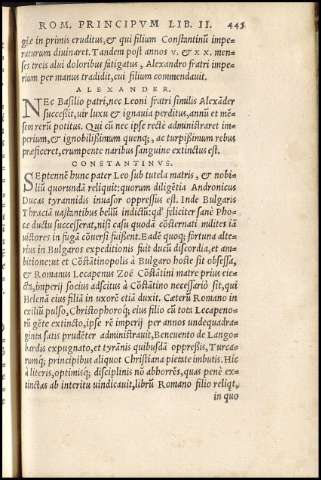 ROM. PRINCIPVM LIB. II. 443
giæ in primis eruditus, & qui filium Constantinũ impe-
raturum diuinaret. Tandem post annos v. & x x. men-
ses treis alui doloribus fatigatus, Alexandro fratri impe-
rium per manus tradidit, cui filium commendauit.
ALEXANDER.
NEc Basilio patri, nec Leoni fratri similis Alexãder
successit, uir luxu & ignauia perditus, annũ et mẽ-
sem rerũ potitus. Qui cũ nec ipse rectè administraret im-
perium, & ignobilissimum quenq;, ac turpissimum rebus
præficeret, erumpente naribus sanguine extinctus est.
CONSTANTINVS.
SEptennẽ hunc pater Leo sub tutela matris, & nobi-
liũ quorundã reliquit: quorum diligẽtia Andronicus
Ducas tyrannidis inuasor oppressus est. Inde Bulgaris
Thraciã uastantibus bellũ indictũ: qd' feliciter sanè Pho-
cæ ductu successerat, nisi casu quodã cõsternati milites iã
uictores in fugã cõuersi fuissent. Eadẽ quoq; fortuna alte-
rius in Bulgaros expeditionis fuit ducũ discordia, et am-
bitione: ut et Cõstãtinopolis à Bulgaro hoste sit obsessa,
& Romanus Lecapenus Zoë Cõstãtini matre prius eie-
cta, imperij socius adscitus à Cõstãtino necessariò sit, qui
Helenã eius filiã in uxorẽ etiã duxit. Cæterũ Romano in
exiliũ pulso, Christophoroq; eius filio cũ tota Lecapeno-
rũ gẽte extincto, ipse rẽ imperij per annos undequadra-
ginta satis prudẽter administrauit, Beneuento de Lango-
bardis expugnato, et tyrãnis quibusdã oppressis, Turca-
rumq; principibus aliquot Christiana pietate imbutis. Hic
à literis, optimisq; disciplinis nõ abhorrẽs, quas penè ex-
tinctas ab interitu uindicauit, librũ Romano filio reliqt,
in quo